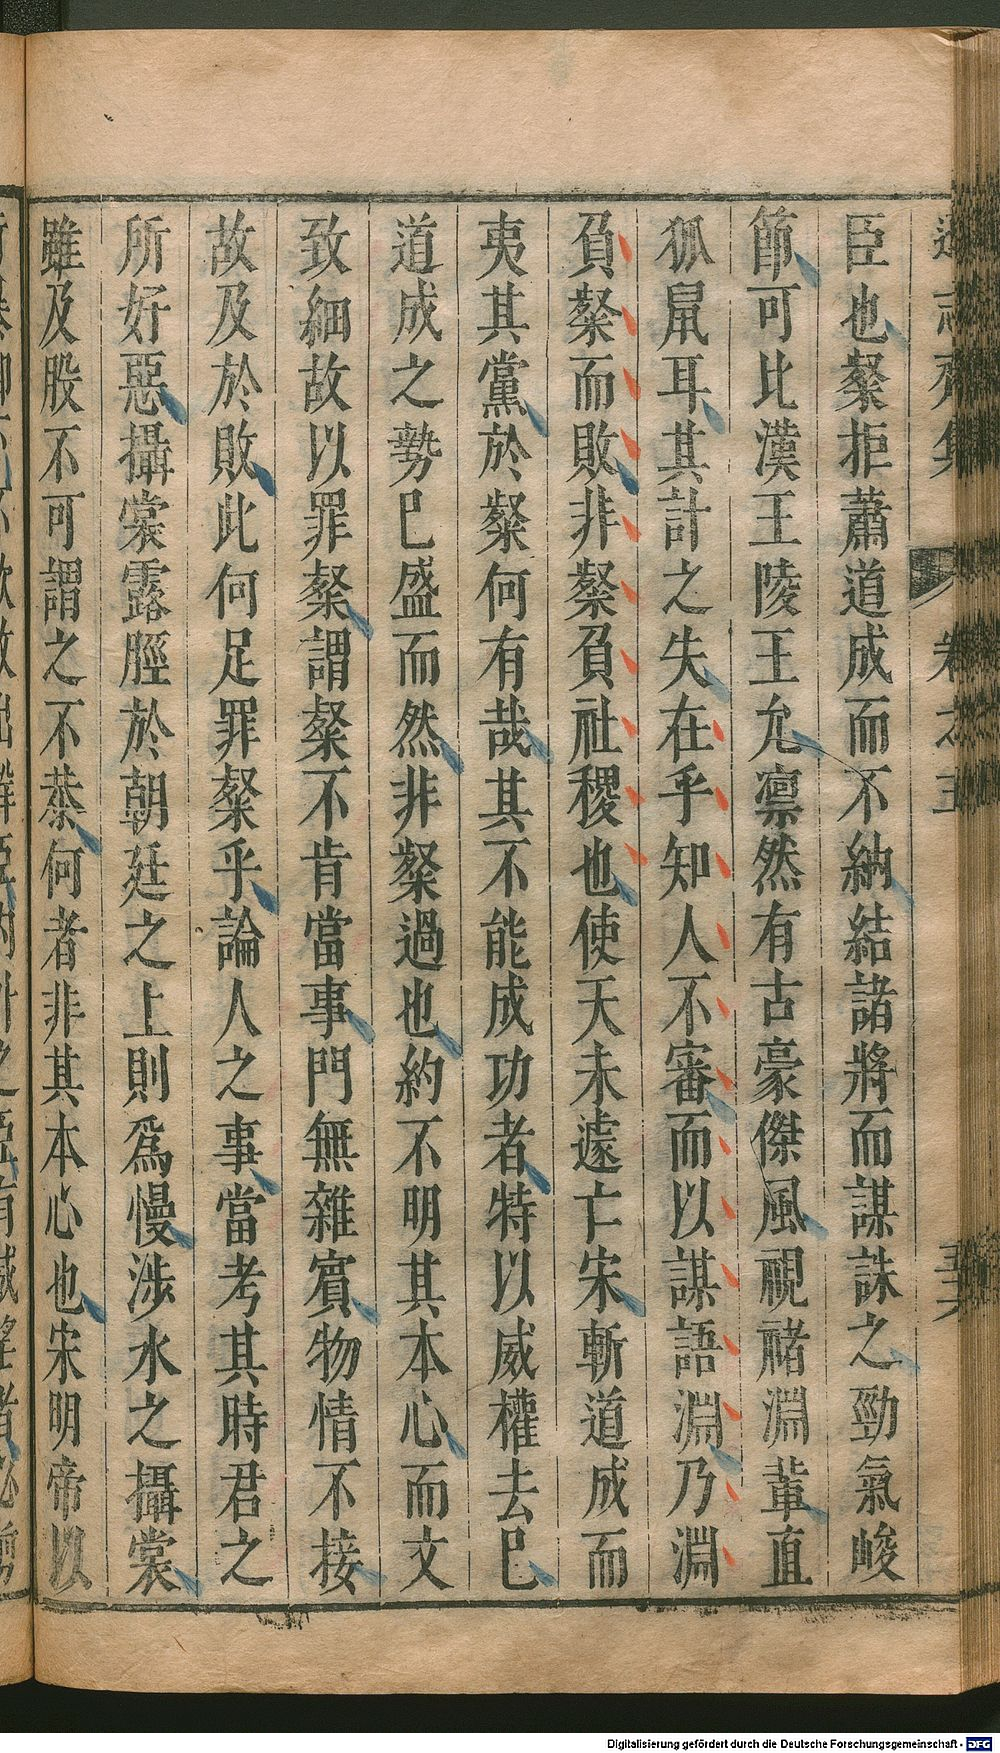 遜志齋集 卷之五
臣也粲拒蕭道成而不納結諸將而謀誅之勁氣峻
節可比漢王陵王允凛然有古豪傑風視褚淵輩直
狐鼠耳其計之失在乎知人不審而以謀語淵乃淵
負粲而敗非粲負社稷也使天未遽亡宋斬道成而
夷其黨於粲何有哉其不能成功者特以威權去已
道成之勢已盛而然非粲過也約不明其本心而文
致細故以罪粲謂粲不肯當事門無雜賓物情不接
故及於敗此何足罪粲乎論人之事當考其時君之
所好惡攝裳露脛於朝廷之上則爲慢涉水之攝裳
雖及股不可謂之不恭何者非其本心也宋明帝以
Digitalisierung gefördert durch die Deutsche Forschungsgemeinschaft - DFG